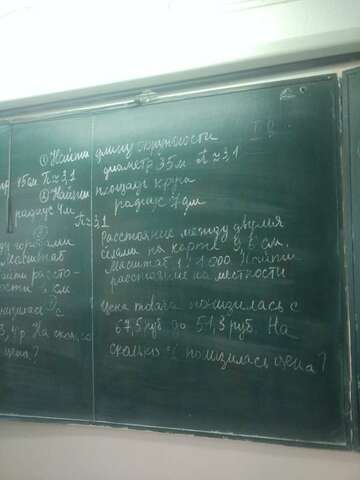 ① Найти длину окружности
диаметр 35м π≈3,1
② Найти площадь круга
радиус 7дм
π≈3,1
Расстояние между двумя
сёлами на карте 9,6 см.
Масштаб 1:1000. Найти
расстояние на местности
Цена товара понизилась с
67,5 руб. до 54,3 руб. На
сколько % понизилась цена?
15см π≈3,1
радиус 4м
городами
Масштаб
см
На сколько
цена?